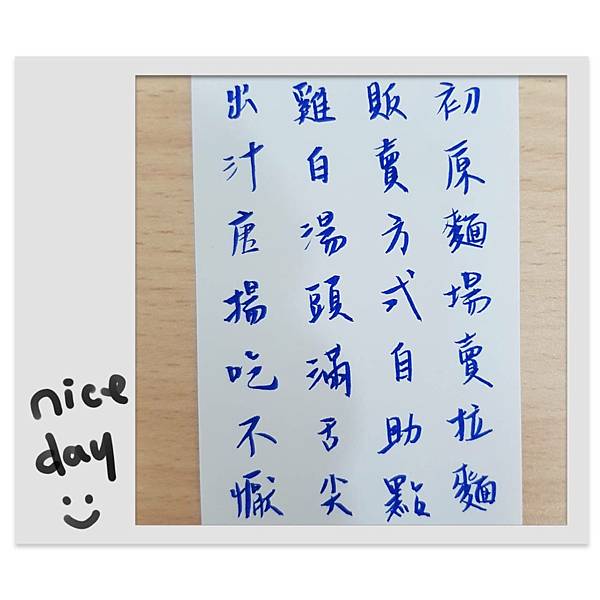 初原麵場賣拉麵
販賣方式自助點
雞白湯頭滿舌尖
出汁唐揚吃不懨
nice
day